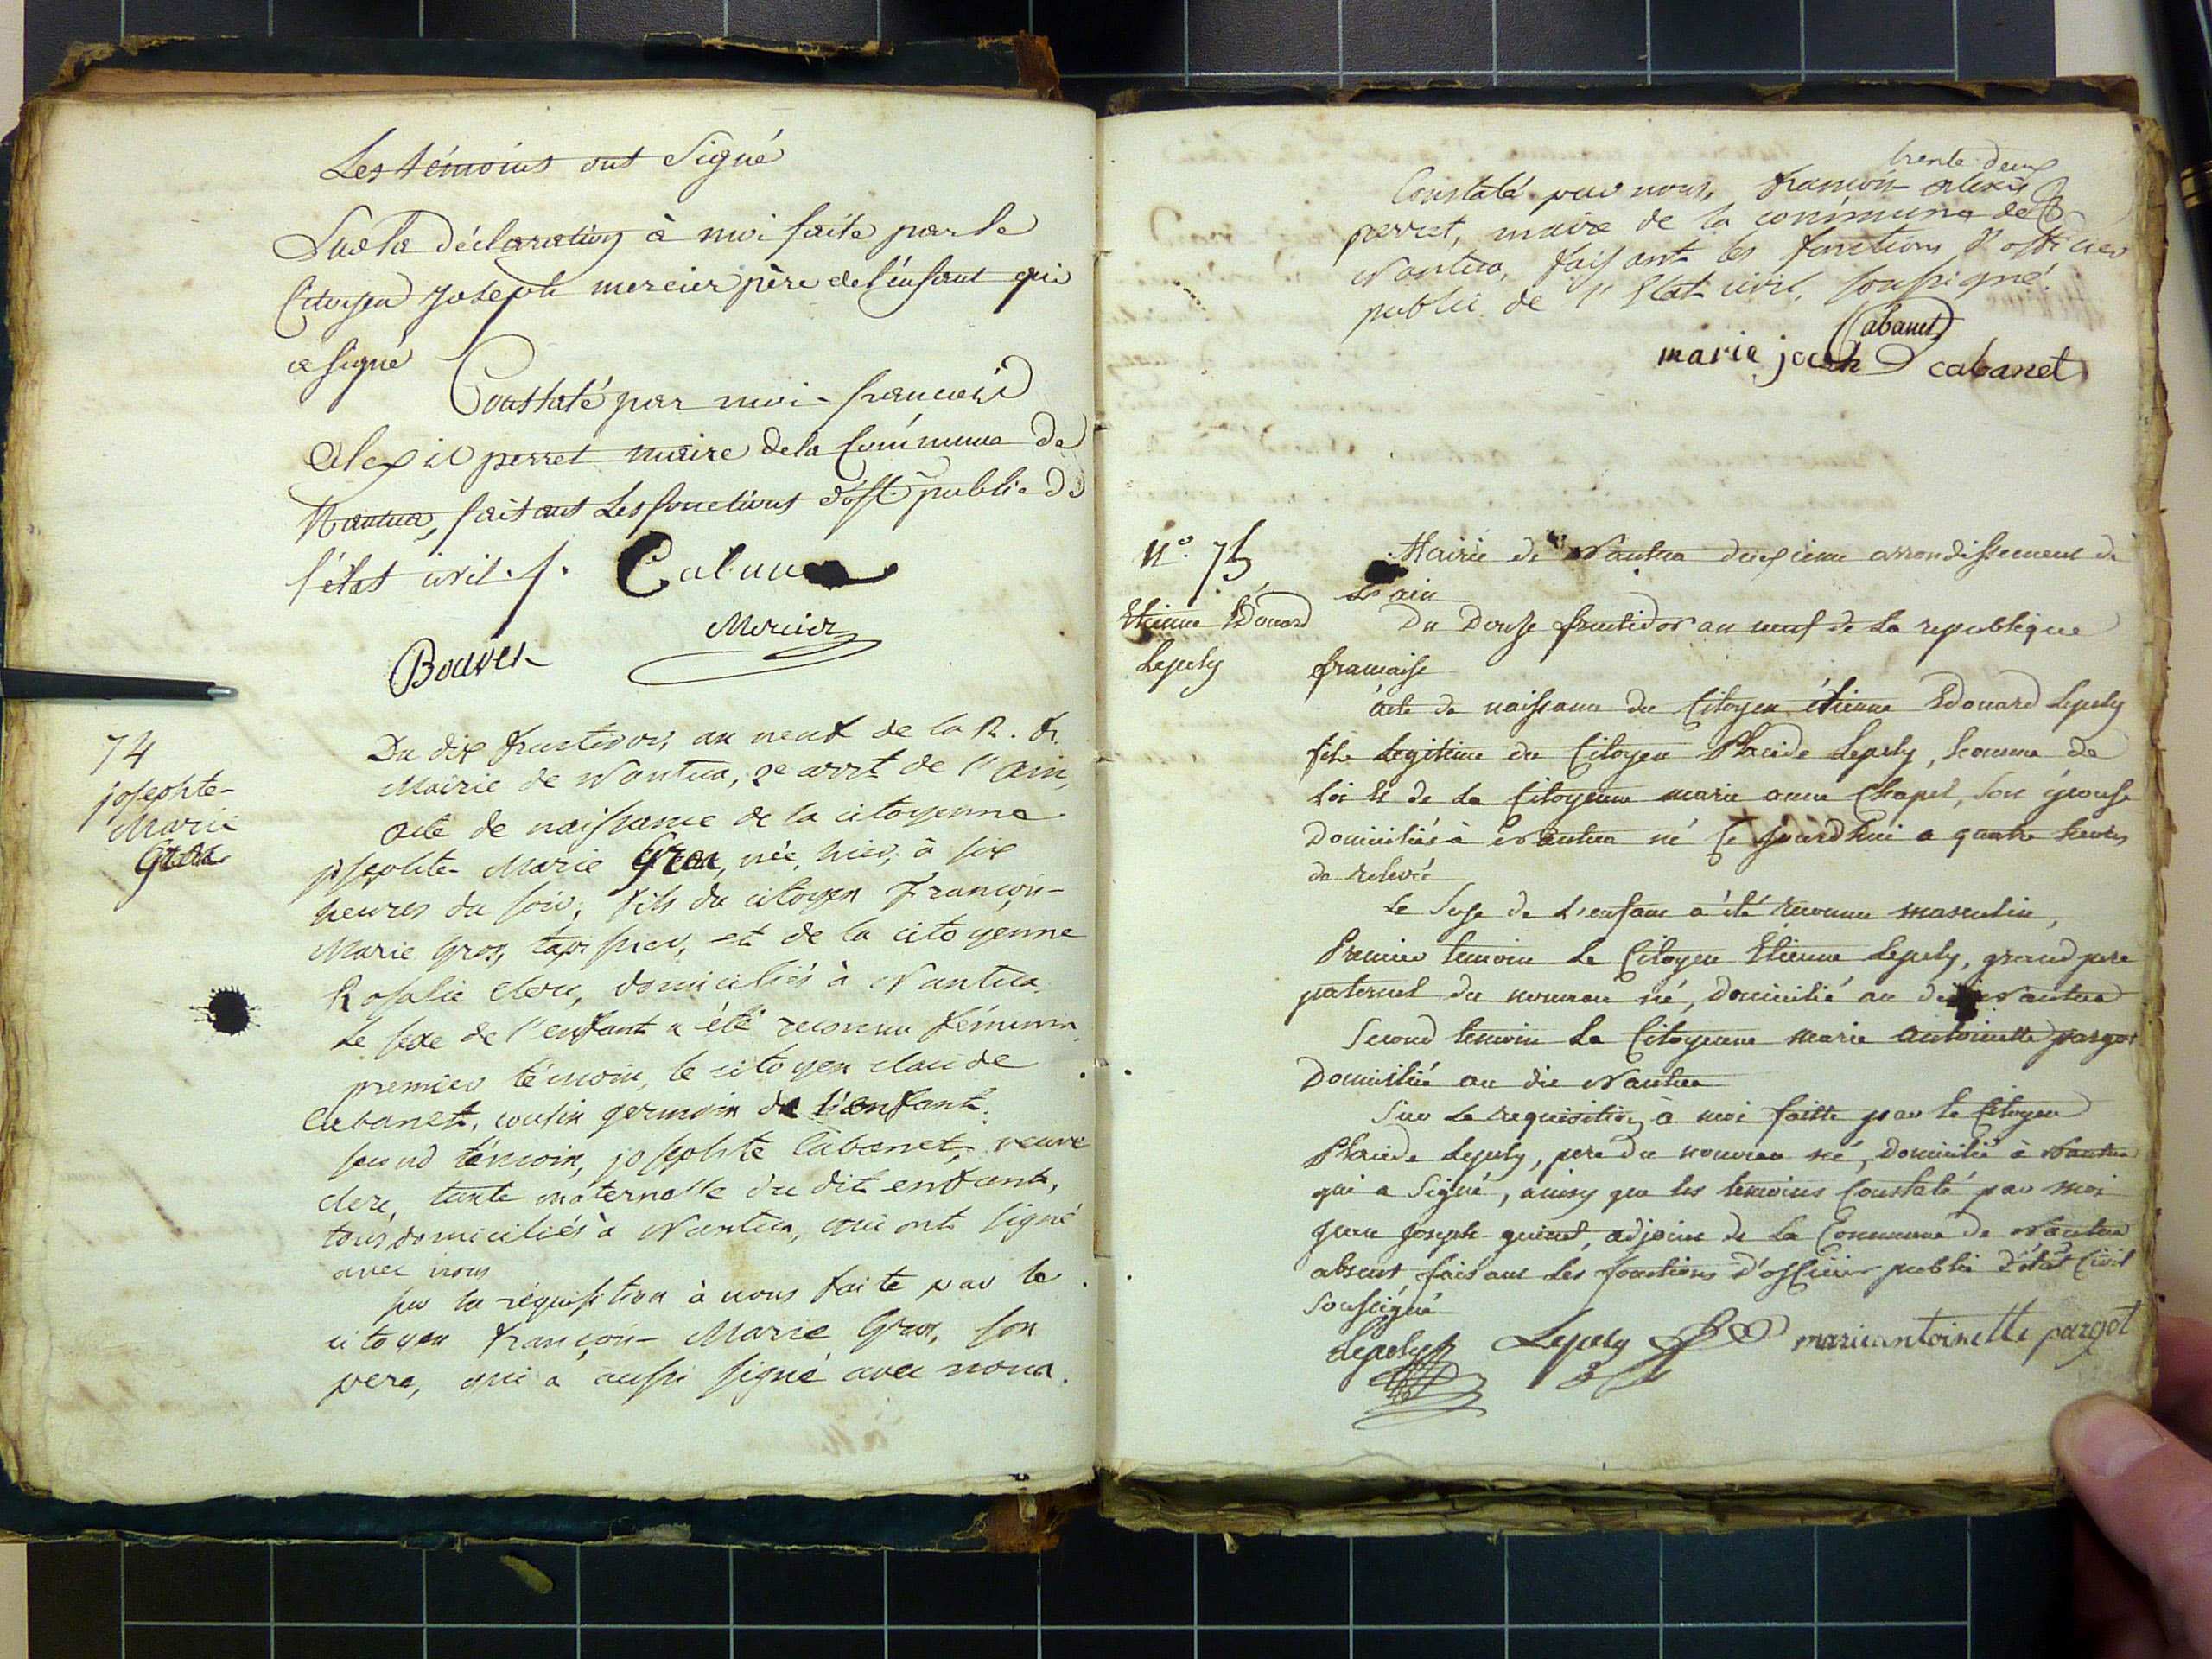 Les témoins ont Signé
Sur la déclaration à moi faite par le
Citoyen Joseph mercier père de l'enfant qui
a signé
Constaté par moi francois
Alexis perret maire de la Commune de
Nantua, faisant Les fonctions d'off. public de
l'état civil. /.
Mercier
Bouvet
74
josephte-
Marie
Gros
Du dix fructidor, an neuf de la R. fr.
Mairie de Nantua, 2e arrt de l'Ain,
acte de naissance de la citoyenne
josephte Marie Gros, née, hier, à six
heures du soir, fils du citoyen François-
Marie Gros, tapissier, et de la citoyenne
Rosalie Clerc, domiciliés à Nantua.
Le sexe de l'enfant a été reconnu féminin.
premier témoin, le citoyen claude
Cabanet, cousin germain de l'enfant.
second témoin, josephte Cabanet, veuve
clerc, tante maternelle du dit enfant,
tous domiciliés à Nantua, qui ont signé
avec nous
sur la réquisition à nous faite par le
citoyen françois-Marie Gros, son
pere, qui a aussi signé avec nous.
trente deux
Constaté par nous, françois alexis
perret, maire de la commune de
Nantua, faisant les fonctions d'officier
public de l'Etat civil, soussigné.
Cabanet
marie cabanet
N.° 75
Etienne Edouard
Lepely
Mairie de Nantua deuxieme arrondissement de
L'ain
Du Douze fructidor an neuf de la republique
francaise
acte de naissance du Citoyen étienne Edouard Lepely
fils Legitime du Citoyen Placide Lepely, homme de
Loi et de la Citoyenne marie anne Chapel, son épouse
Domiciliés à Nantua né Ce jourd'hui a quatre heures
de relevée
Le Sexe de L'enfant a été reconnu masculin,
Premier temoin Le Citoyen Etienne Lepely, grand pere
paternel du nouveau né, Domicilié au dit Nantua
Second temoin La Citoyenne marie antoinette pargot
Domiciliée au dit Nantua
Sur La requisition à moi faitte par le Citoyen
Placide Lepely, pere du nouveau né, Domicilié à Nantua
qui a Signé, ainsy que les temoins Constaté par moi
jean joseph guinet, adjoint de La Commune de Nantua
absent, faisant Les fonctions d'officier public d'état Civil
Soussigné
Lepely Lepely marieantoinette pargot